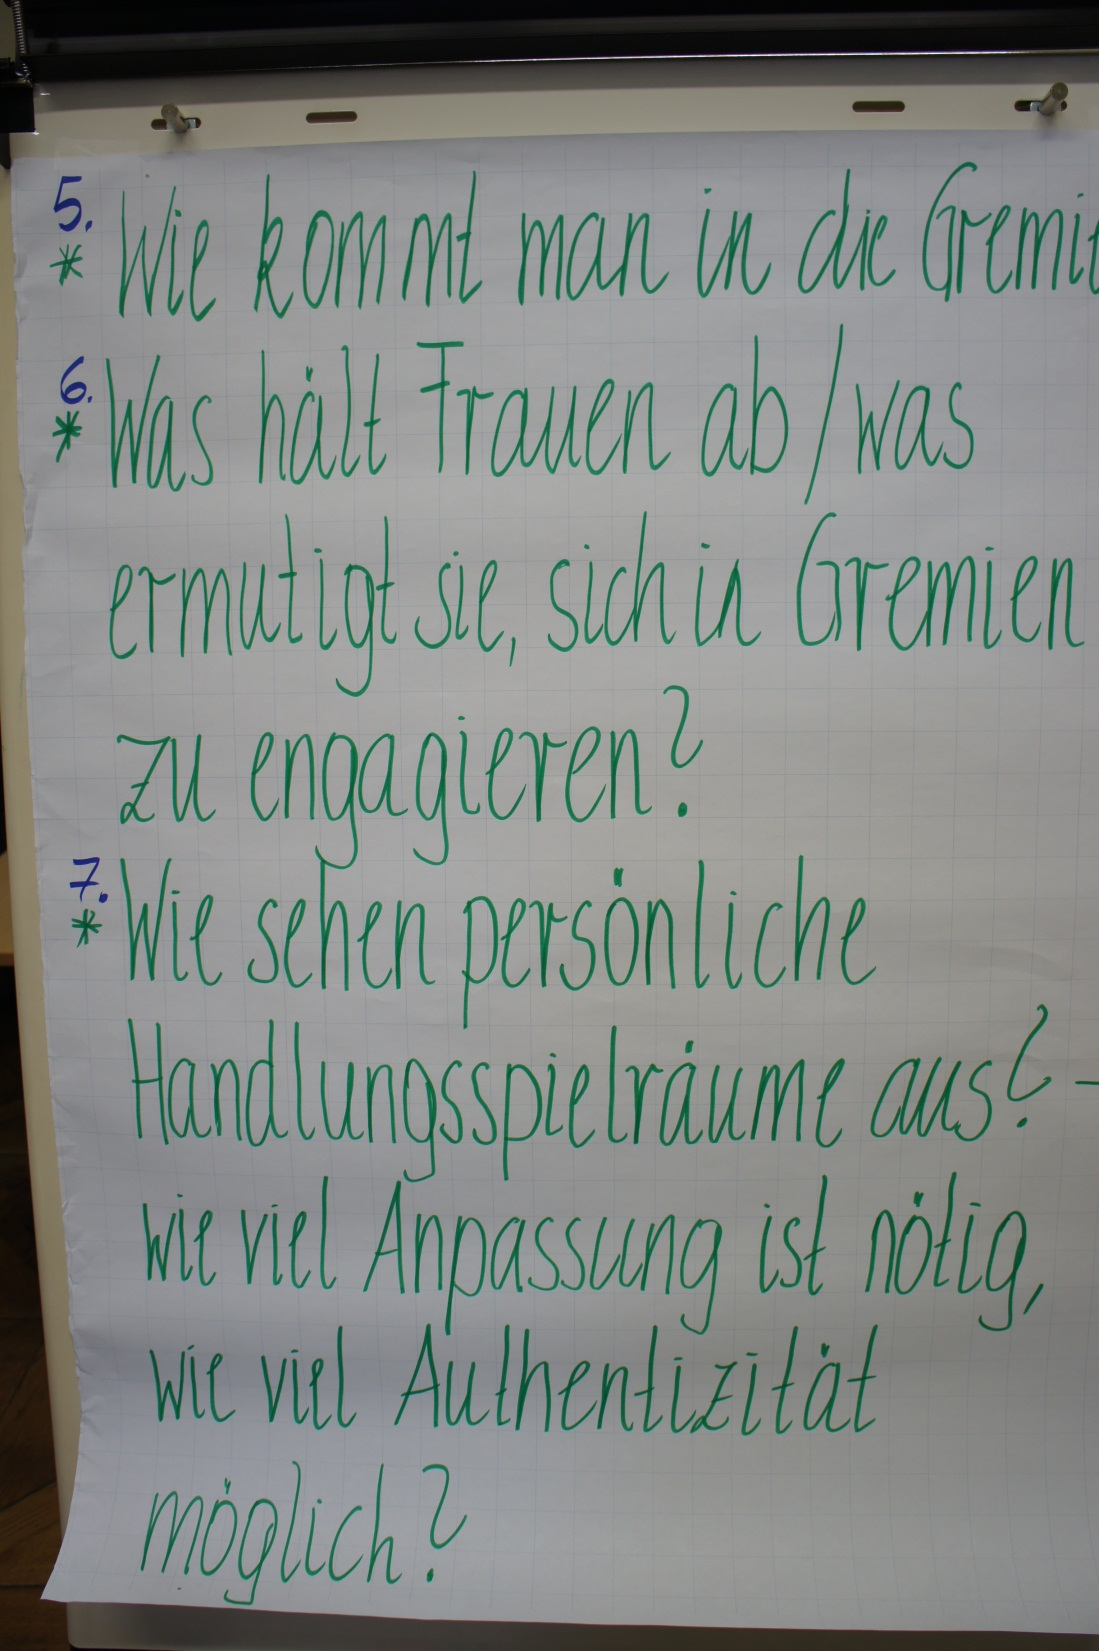 5. Wie kommt man in die Gremie
* 
6. Was hält Frauen ab / was
* ermutigt sie, sich in Gremien
zu engagieren?
7. Wie sehen persönliche
* Handlungsspielräume aus? -
wie viel Anpassung ist nötig,
wie viel Authentizität
möglich?